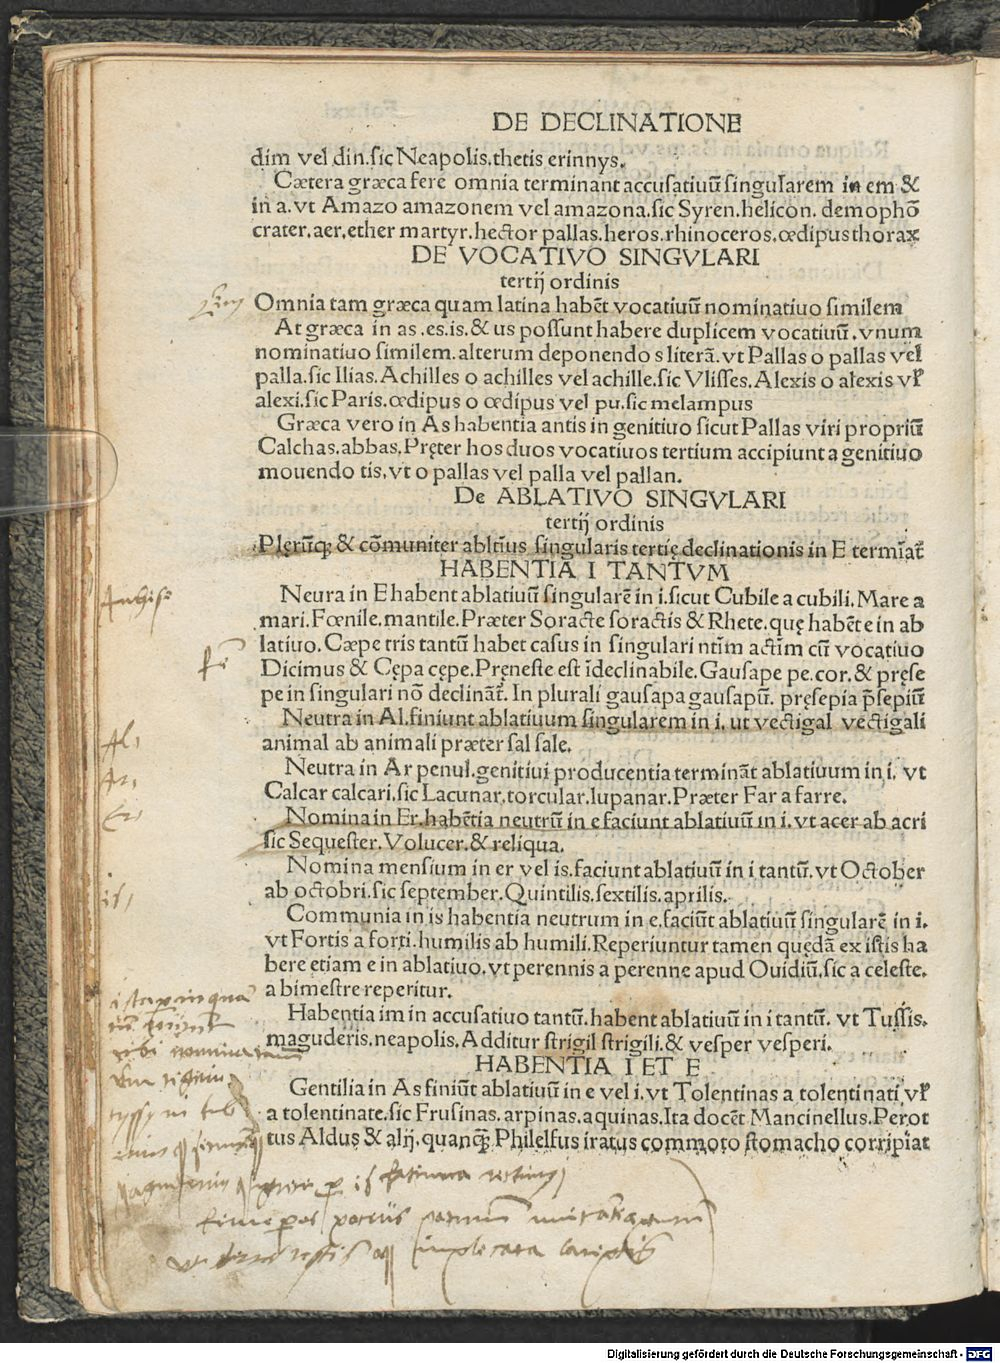 DE DECLINATIONE
dim vel din.sic Neapolis.thetis erinnys.
Cætera græca fere omnia terminant accusatiuū singularem in em &
in a.vt Amazo amazonem vel amazona.sic Syren.helicon. demophō
crater.aer.ether martyr.hector pallas.heros.rhinoceros.œdipus thorax
DE VOCATIVO SINGVLARI
tertij ordinis
Omnia tam græca quam latina habēt vocatiuū nominatiuo similem
At græca in as.es.is.& us possunt habere duplicem vocatiuū.vnum
nominatiuo similem.alterum deponendo s literā.vt Pallas o pallas vel
palla.sic Ilias.Achilles o achilles vel achille.sic Vlisses.Alexis o alexis vł
alexi.sic Paris.œdipus o œdipus vel pu.sic melampus
Græca vero in As habentia antis in genitiuo sicut Pallas viri propriū
Calchas.abbas.Pręter hos duos vocatiuos tertium accipiunt a genitiuo
mouendo tis.vt o pallas vel palla vel pallan.
De ABLATIVO SINGVLARI
tertij ordinis
Plęrūq; & cōmuniter abltīus singularis tertię declinationis in E termīat̄
HABENTIA I TANTVM
Neura in E habent ablatiuū singularē in i.sicut Cubile a cubili.Mare a
mari.Fœnile.mantile.Præter Soracte soractis & Rhete.quę habēt e in ab
latiuo.Cæpe tris tantū habet casus in singulari ntīm actīm cū vocatiuo
Dicimus & Cępa cępe.Pręneste est īdeclinabile.Gausape pe.cor.& pręse
pe in singulari nō declināt̄. In plurali gausapa gausapū. pręsepia p̄sepiū
Neutra in Al.finiunt ablatiuum singularem in i. ut vectigal vectigali
animal ab animali præter sal sale.
Neutra in Ar penul.genitiui producentia termināt ablatiuum in i. vt
Calcar calcari.sic Lacunar.torcular.lupanar.Præter Far a farre.
Nomina in Er.habētia neutrū in e faciunt ablatiuū in i.vt acer ab acri
sic Sequester.Volucer.& reliqua.
Nomina mensium in er vel is.faciunt ablatiuū in i tantū.vt October
ab octobri.sic september.Quintilis.sextilis.aprilis.
Communia in is habentia neutrum in e.faciūt ablatiuū singularē in i.
vt Fortis a forti.humilis ab humili.Reperiuntur tamen quędā ex istis ha
bere etiam e in ablatiuo.vt perennis a perenne apud Ouidiū.sic a celeste.
a bimestre reperitur.
Habentia im in accusatiuo tantū.habent ablatiuū in i tantū. vt Tussis.
maguderis.neapolis.Additur strigil strigili.& vesper vesperi.
HABENTIA I ET E
Gentilia in As finiūt ablatiuū in e vel i.vt Tolentinas a tolentinati vł
a tolentinate.sic Frusinas.arpinas.aquinas.Ita docēt Mancinellus.Perot
tus Aldus & alij.quancq̄; Philelfus iratus commoto stomacho corripiat
Al.
Ar.
Er.
is.
Digitalisierung gefördert durch die Deutsche Forschungsgemeinschaft - DFG